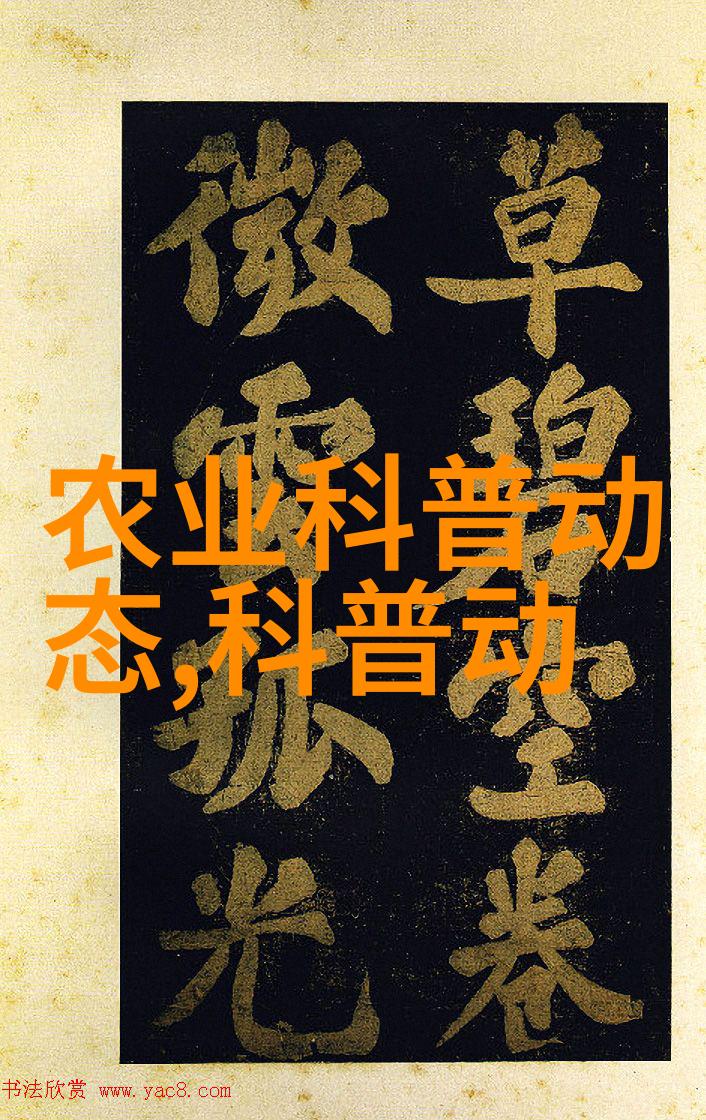 草碧空卷
微雲孤光
农业科普动
态,科普动
书法欣赏 www.yac8.com